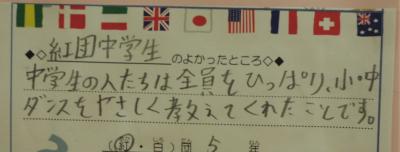 ◆◇紅団中学生のよかったところ◇◆
中学生の人たちは全員をひっぱり、小・中
ダンスをやさしく教えてくれたことです。
紅・白)団 5 年